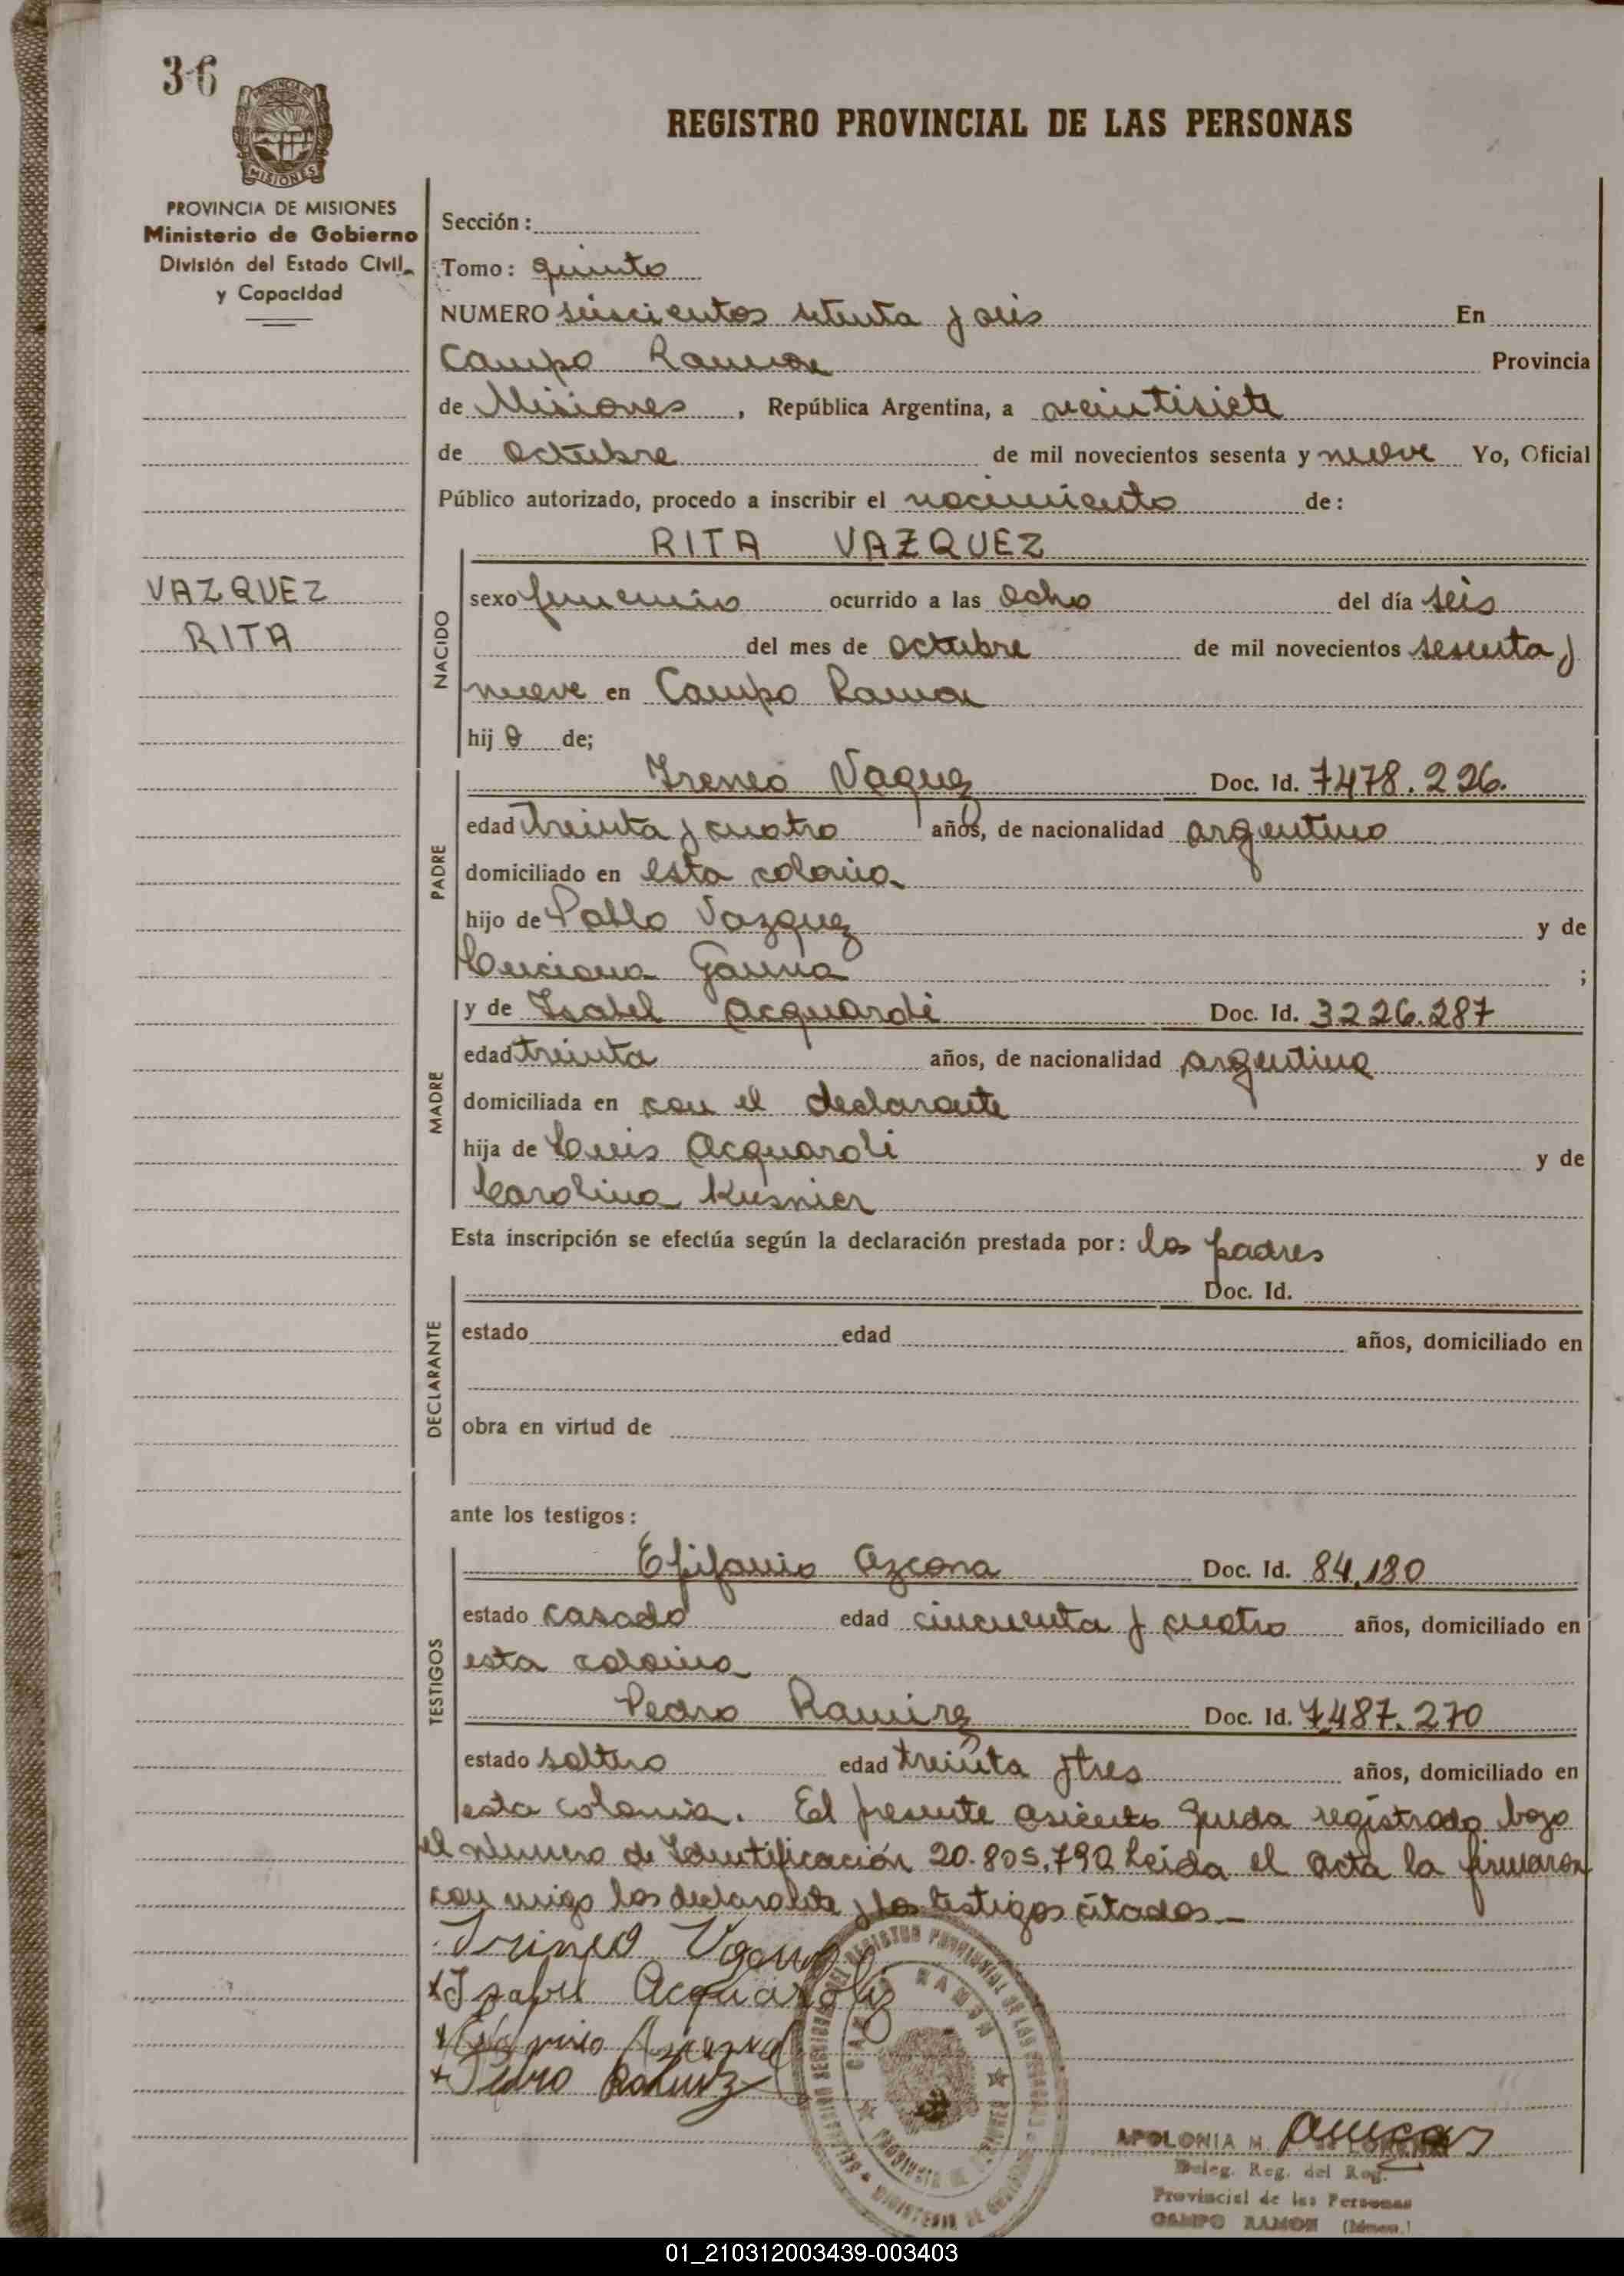 36
MISIONES
REGISTRO PROVINCIAL DE LAS PERSONAS
PROVINCIA DE MISIONES
Ministerio de Gobierno
División del Estado Civil
y Capacidad
Sección:
Tomo: quinto
NUMERO seiscientos setenta y seis En
Campo Ramon Provincia
de Misiones, República Argentina, a veintisiete
de Octubre de mil novecientos sesenta y nueve Yo, Oficial
Público autorizado, procedo a inscribir el nacimiento de:
RITA VAZQUEZ
VAZQUEZ
RITA
NACIDO
sexo femenino ocurrido a las ocho del día seis
del mes de Octubre de mil novecientos sesenta y
nueve en Campo Ramon
hij a de;
PADRE
Ireneo Vaquez Doc. Id. 7478.226.
edad treinta y cuatro años, de nacionalidad argentino
domiciliado en esta colonia
hijo de Pablo Vazquez y de
Luciana Gauna ;
MADRE
y de Isabel Acquardi Doc. Id. 3226.287
edad treinta años, de nacionalidad argentina
domiciliada en con el declarante
hija de Luis Acquaroli y de
Carolina Kusnier
Esta inscripción se efectúa según la declaración prestada por: los padres
DECLARANTE
Doc. Id.
estado edad años, domiciliado en
obra en virtud de
ante los testigos:
TESTIGOS
Efifanio Azcona Doc. Id. 84,180
estado casado edad cincuenta y cuatro años, domiciliado en
esta colonia
Pedro Ramirez Doc. Id. 7487.270
estado soltero edad treinta y tres años, domiciliado en
esta colonia. El presente asiento queda registrado bajo
el número de Identificación 20.805.790 Leida el acta la firmaron
con migo los declarante y los testigos citados.—
Irineo
Isabel
Pedro Ramirez
CAMPO RAMON
PROVINCIA DE MISIONES
APOLONIA M.
Deleg. Reg. del Reg.
Provincial de las Personas
CAMPO RAMON
01_210312003439-003403